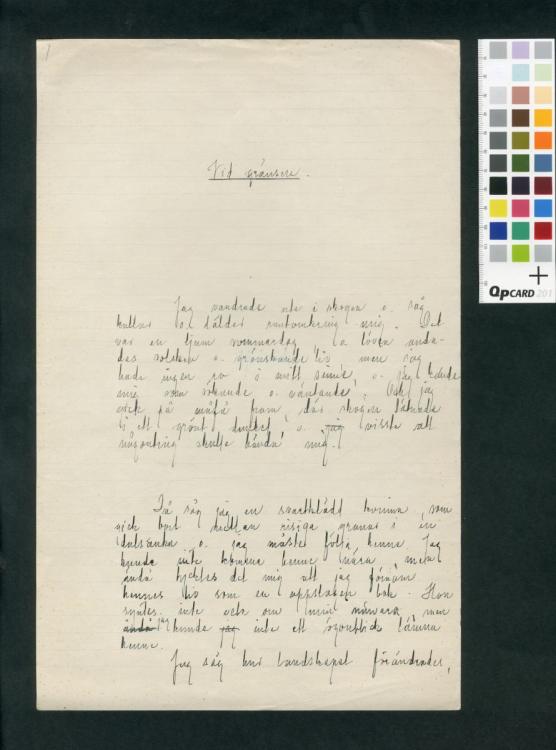 1
Vid gränsen.
Jag vandrade ute i skogen o. såg
kullar o. dälder runtomkring mig. Det
var en ljum sommardag, o. löven anda-
des solsken o. grönskande liv men jag
hade ingen ro i mitt sinne, o. jag kände
mig som sökande o. väntande. Och jag
gick på måfå fram, där skogen tätnade
i ett grönt dunkel o. jag visste att
någonting skulle hända mig.
Då såg jag en svartklädd kvinna, som
gick bort mellan risiga granar i en
dalsänka o. jag måste följa henne. Jag
kunde inte komma henne nära, men
ändå tycktes det mig att jag förnam
hennes liv som en uppslagen bok. Hon
syntes inte veta om min närvaro, men
ändå jag kunde jag inte ett ögonblick lämna
henne.
Jag såg hur landskapet förändrades,
QPCARD 201